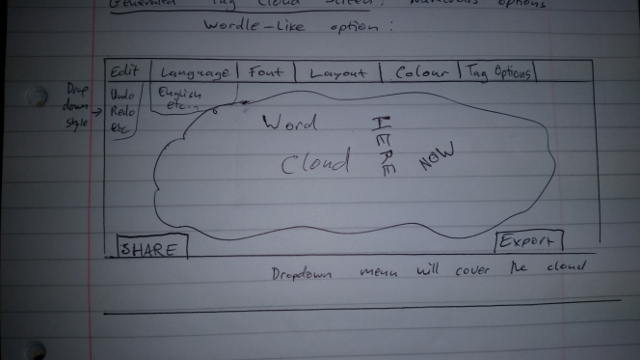 Generated Tag Cloud Screen: Numerous options
Wordle-Like option:
Edit | Language | Font | Layout | Colour | Tag Options
Drop down style
Undo
Redo
etc
English
etc...
Word
Cloud
HERE
NOW
SHARE
Export
Dropdown menu will cover the cloud